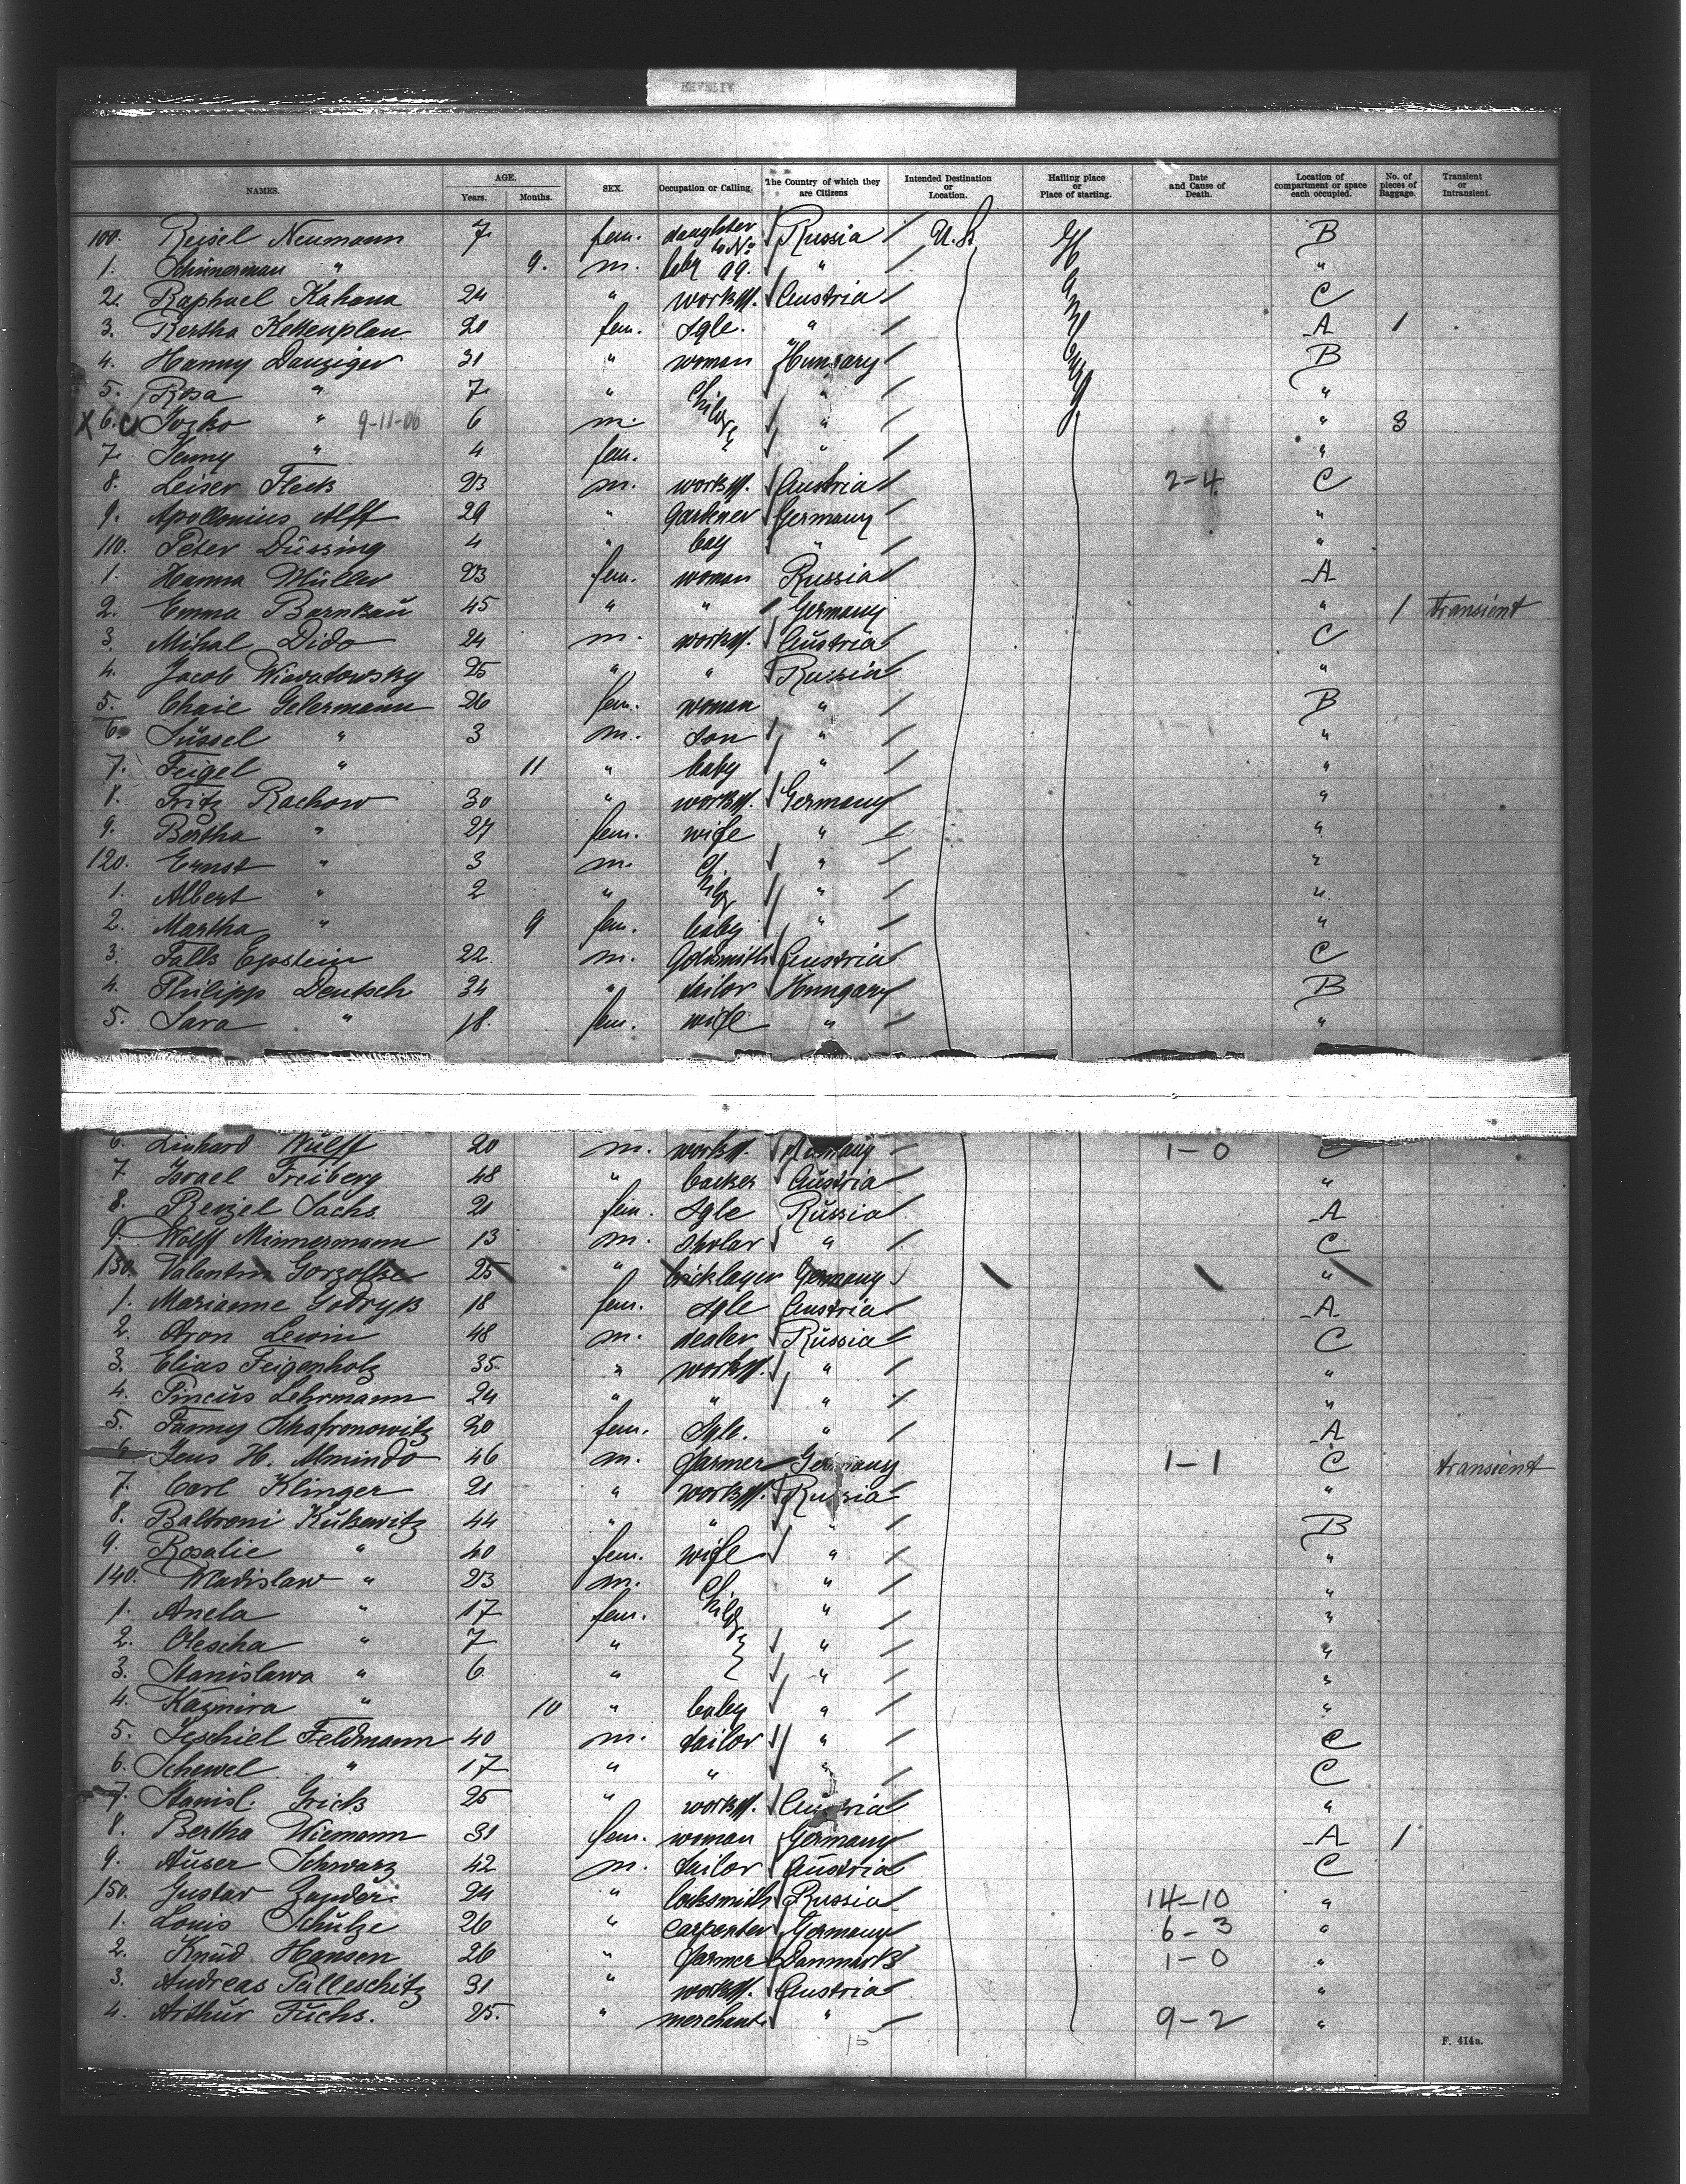 NAMES. AGE. Years. Months. SEX. Occupation or Calling. The Country of which they are Citizens Intended Destination or Location. Hailing place or Place of starting. Date and Cause of Death. Location of compartment or space each occupied. No. of pieces of Baggage. Transient or Intransient.
100. Reisel Neumann 7 fem. daughter to No Russia U.S. Hamburg B
1. " 9. m. baby 99. " "
2. Raphael Kahana 24 " workm. Austria C
3. Bertha Kettenplan 20 fem. Sgle. " A 1
4. Hanny Danziger 31 " woman Hungary B
5. Rosa " 7 " Childr. " "
X 6. C Jozko " 9-11-06 6 m. " " 3
7. Jenny " 4 fem. " " "
8. Leiser Fleck 23 m. workm. Austria 2-4 C
9. Apollonius Alff 29 " Gardener Germany "
110. Peter Düssing 4 " boy " "
1. Hanna Müller 23 fem. woman Russia A
2. Emma Barnkau 45 " " Germany " 1 transient
3. Mihal Dido 24 m. workm. Austria C
4. Jacob Wiwatowsky 25 " " Russia "
5. Chaie Gelermann 26 fem. woman " B
6. Süssel " 3 m. Son " "
7. Feigel " 11 " baby " "
8. Fritz Rachow 30 " workm. Germany "
9. Bertha " 27 fem. wife " "
120. Ernst " 3 m. Childr " "
1. Albert " 2 " " "
2. Martha " 9 fem. baby " "
3. Falk Epstein 22 m. Goldsmith Austria C
4. Philipp Deutsch 34 " tailor Hungary B
5. Sara " 18. fem. wife " "
6. Linhard Wulff 20 m. workm. Germany 1-0 C
7 Israel Freiberg 48 " backer Austria "
8. Reizel Sachs 21 fem. Sgle Russia A
9. Wolff Minnermann 13 m. skolar " C
130. Valentin Gorzolke 25 " bricklayer Germany "
1. Marianne Godryk 18 fem. Sgle Austria A
2. Aron Lewin 48 m. dealer Russia C
3. Elias Feigenholz 35 " workm. " "
4. Pincus Lehrmann 24 " " " "
5. Fanny Schafronowitz 20 fem. Sgle. " A
6 Jens H. Almindo 46 m. farmer Germany 1-1 C transient
7. Carl Klinger 21 " workm. Russia "
8. Baltroni Kukewitz 44 " " " B
9. Rosalie " 40 fem. wife " "
140. Wladislaw " 23 m. Childr " "
1. Anela " 17 fem. " "
2. Olescha " 7 " " "
3. Stanislawa " 6 " " "
4. Kazmira " 10 " baby " "
5. Jeschiel Feldmann 40 m. tailor " C
6. Schewel " 17 " " " C
7. Stanisl. Grick 25 " workm. Austria "
8. Bertha Wiemann 31 fem. woman Germany A 1
9. Auser Schwarz 42 m. tailor Austria C
150. Gustav Zander 24 " locksmith Russia 14-10 "
1. Louis Schulze 26 " carpenter Germany 6-3 "
2. Knud Hansen 26 " farmer Danmark 1-0 "
3. Andreas Palleschitz 31 " workm. Austria "
4. Arthur Fuchs. 25. " merchant. " 9-2 "
15
F. 414a.